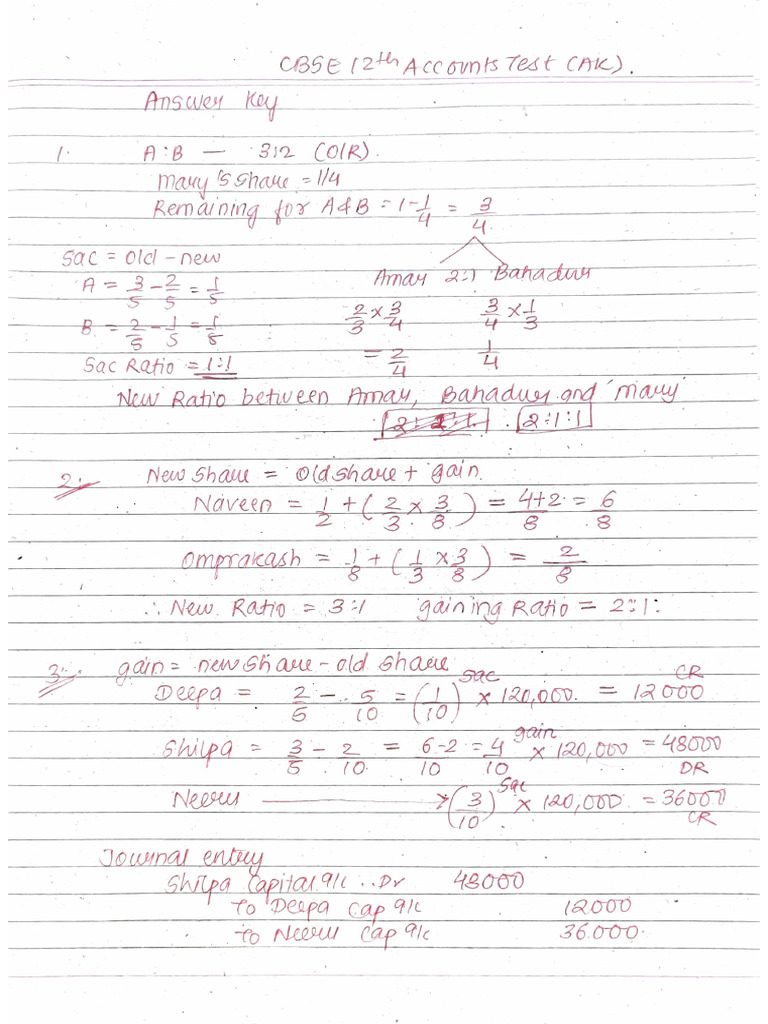 CBSE 12th Accounts Test (AK).
Answer Key
1. A:B — 3:2 (OIR).
Mary's share = 1/4
Remaining for A & B = 1 - 1/4 = 3/4.
Sac = old - new
Amar 2:1 Bahadur
A = 3/5 - 2/5 = 1/5
2/3 × 3/4 3/4 × 1/3
B = 2/5 - 1/5 = 1/5
= 2/4 1/4
Sac Ratio = 1:1
New Ratio between Amar, Bahadur and Mary
2:1:1
2. New Share = Old share + gain.
Naveen = 1/2 + (2/3 × 3/8) = 4+2/8 = 6/8
Omprakash = 1/8 + (1/3 × 3/8) = 2/8
∴ New Ratio = 3:1 gaining Ratio = 2:1:
3. gain = new share - old share
Deepa = 2/5 - 5/10 = (1/10) Sac × 120,000. = 12000 CR
Shilpa = 3/5 - 2/10 = 6-2/10 = 4/10 gain × 120,000 = 48000 DR
Neeru → (3/10) Sac × 120,000 = 36000 CR
Journal entry
Shilpa Capital a/c .. Dr 48000
To Deepa Cap a/c 12000
To Neeru Cap a/c 36.000.